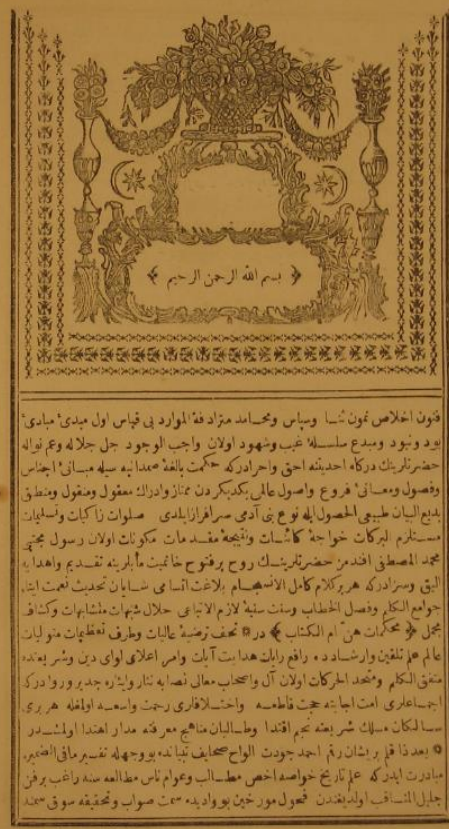 بسم الله الرحمن الرحيم
فنون اخلاص نمون ثنا وسپاس ومحامد مترادفة الموارد بی قیاس اول مبدئ مبادئ
بود ونبود ومبدع سلسلهٔ غیب وشهود اولان واجب الوجود جل جلاله وعم نواله
حضرتلرینك درکاه احدیتنه احق واحرادرکه حکمت بالغهٔ صمدانیه سیله مبانئ اجناس
وفصول ومعانئ فروع واصول عالمی یکدیکردن ممتاز وادراك معقول ومنقول ومنطق
بدیع البیان طبیعی الحصول ایله نوع بنی آدمی سرافراز ایلدی صلوات زاکیات وتسلیمات
مستلزم البرکات خواجهٔ کائنات ونتیجهٔ مقدمات مکونات اولان رسول مجتبی
محمد المصطفی افندمز حضرتلرینك روح پرفتوح خاتمیت مأبلرینه تقدیم واهدایه
الیق وسزادرکه هر برکلام کامل الانسجام بلاغت اتسامی شایان تحدیث نعمت ایتاء
جوامع الکلم وفصل الخطاب وسنت سنیهٔ لازم الاتباعی حلال شبهات متشابهات وکشاف
مجمل ﴿ محکمات هن ام الکتاب ﴾ در تحف ترضیهٔ عالیات وطرف تعظیمات متوالیات
عالم علم تلقین وارشاد ده رافع رایات هدایت آیات وامر اعلای لوای دین وشریعتده
متفق الکلم ومتحد الحرکات اولان آل واصحاب معالی نصابه نثار وایثاره جدیر وروادرکه
اجماعلری امت اجابته حجت قاطعه واختلافلری رحمت واسعه اولمغله هر بری
سالکان مسلك شریعته نجم اقتدا وطالبان مناهج معرفته مدار اهتدا اولمشدر
بعد ذا قلم پریشان رقم احمد جودت الواح صحایف تبیانده بو وجهله تفسیر مافی الضمیره
مبادرت ایدرکه علم تاریخ خواصه اخص مطالب وعوام ناس مطالعه سنه راغب برفن
جلیل المناقب اولدیغندن فحول مورخین بو وادیده سمت صواب وتحقیقه سوق سمند